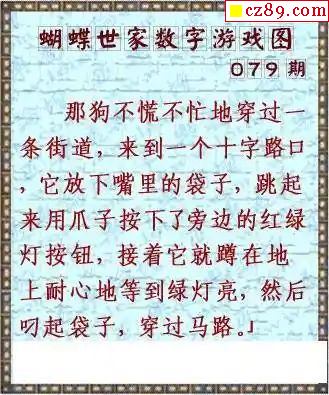 cz89.com
蝴蝶世家数字游戏图
079期
那狗不慌不忙地穿过一
条街道，来到一个十字路口
，它放下嘴里的袋子，跳起
来用爪子按下了旁边的红绿
灯按钮，接着它就蹲在地
上耐心地等到绿灯亮，然后
叼起袋子，穿过马路。」